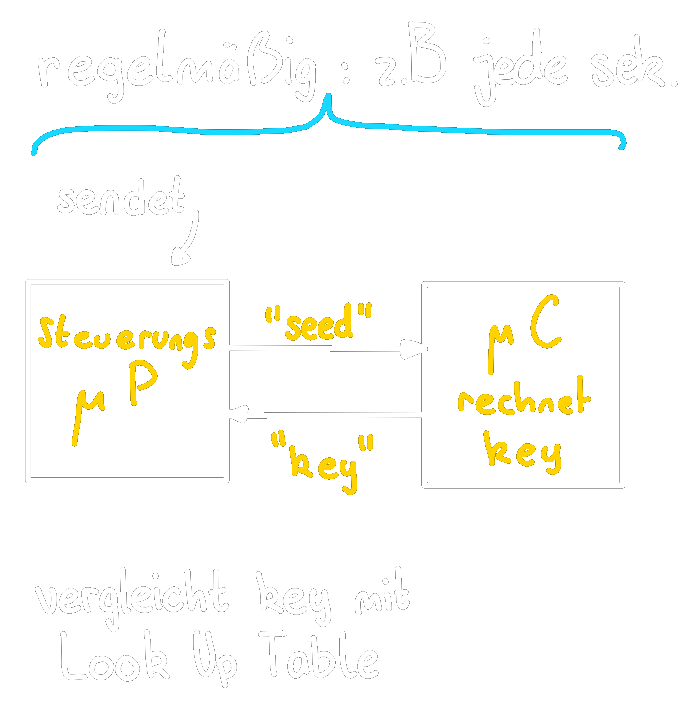 regelmäßig : z.B jede sek.
sendet
Steuerungs
μP
"seed"
"key"
μC
rechnet
key
vergleicht key mit
Look Up Table